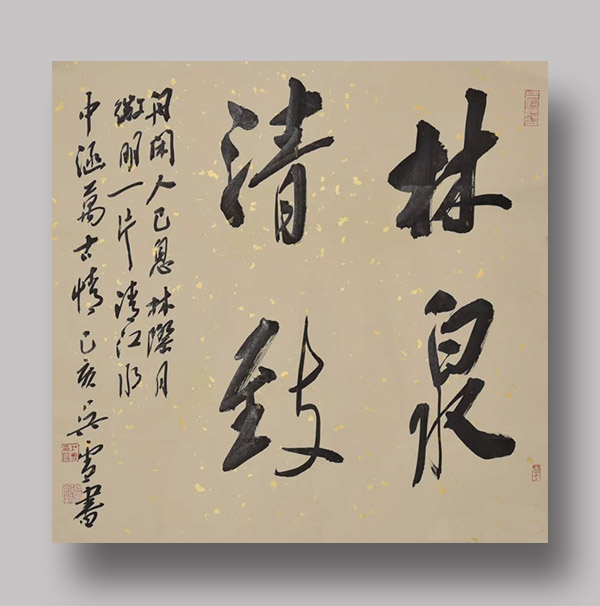 林泉
清致
舟闲人已息林際月
微明一片清江水
中涵萬古情己亥吴雪書